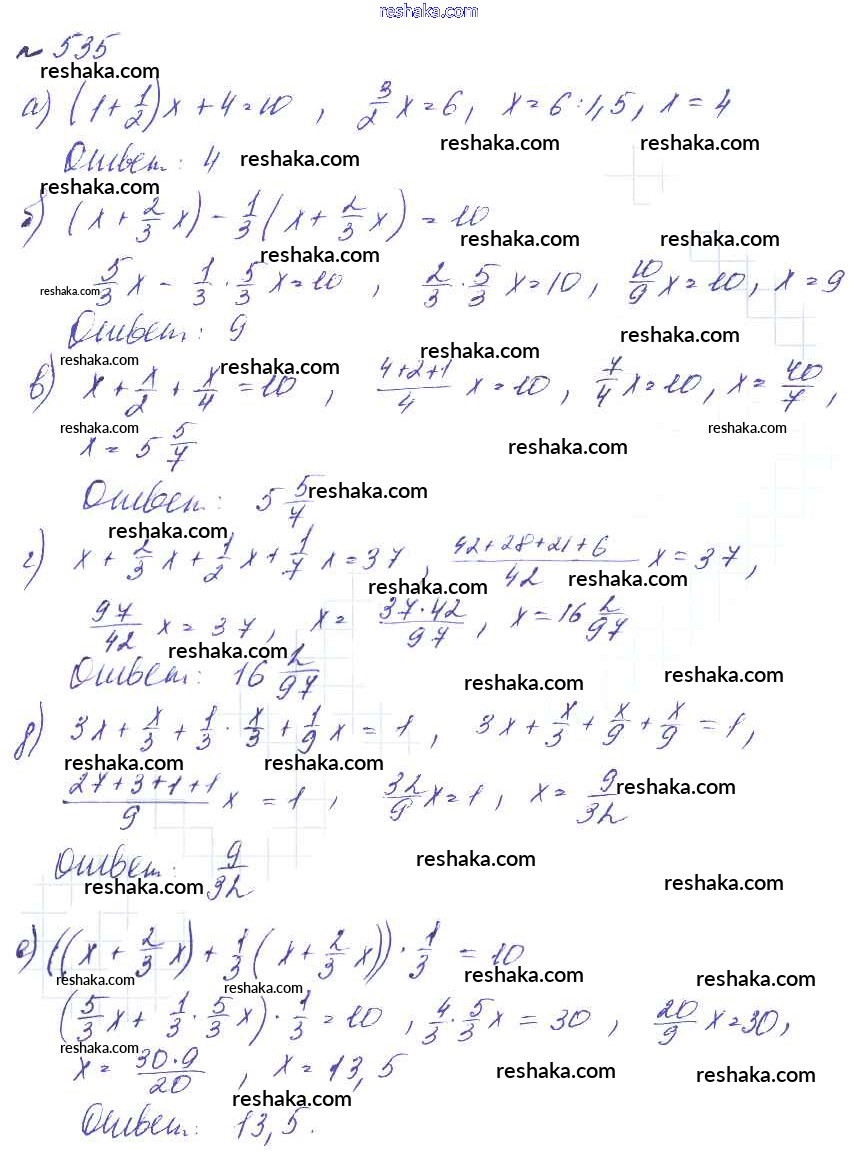 reshaka.com
№ 535
reshaka.com
а) (1+1/2)x+4=10, 3/2 x=6, x=6:1,5, x=4
reshaka.com reshaka.com
Ответ: 4 reshaka.com
reshaka.com
б) (x+2/3 x)-1/3(x+2/3 x)=10
reshaka.com reshaka.com
5/3 x-1/3·5/3 x=10, 2/3·5/3 x=10, 10/9 x=10, x=9
reshaka.com
Ответ: 9 reshaka.com
reshaka.com reshaka.com reshaka.com
в) x+x/2+x/4=10, (4+2+1)/4 x=10, 7/4 x=10, x=40/7,
reshaka.com reshaka.com
x=5 5/7 reshaka.com
Ответ: 5 5/7 reshaka.com
reshaka.com
г) x+2/3 x+1/2 x+1/7 x=37, (42+28+21+6)/42 x=37,
reshaka.com reshaka.com
97/42 x=37, x=(37·42)/97, x=16 2/97
reshaka.com
Ответ: 16 2/97 reshaka.com reshaka.com
д) 3x+x/3+1/3·x/3+1/9 x=1, 3x+x/3+x/9+x/9=1,
reshaka.com reshaka.com
(27+3+1+1)/9 x=1, 32/9 x=1, x=9/32 reshaka.com
Ответ: 9/32 reshaka.com
reshaka.com reshaka.com
е) ((x+2/3 x)+1/3(x+2/3 x))·1/3=10
reshaka.com reshaka.com reshaka.com reshaka.com
(5/3 x+1/3·5/3 x)·1/3=10, 4/3·5/3 x=30, 20/9 x=30,
reshaka.com
x=(30·9)/20, x=13,5 reshaka.com reshaka.com
reshaka.com
Ответ: 13,5.